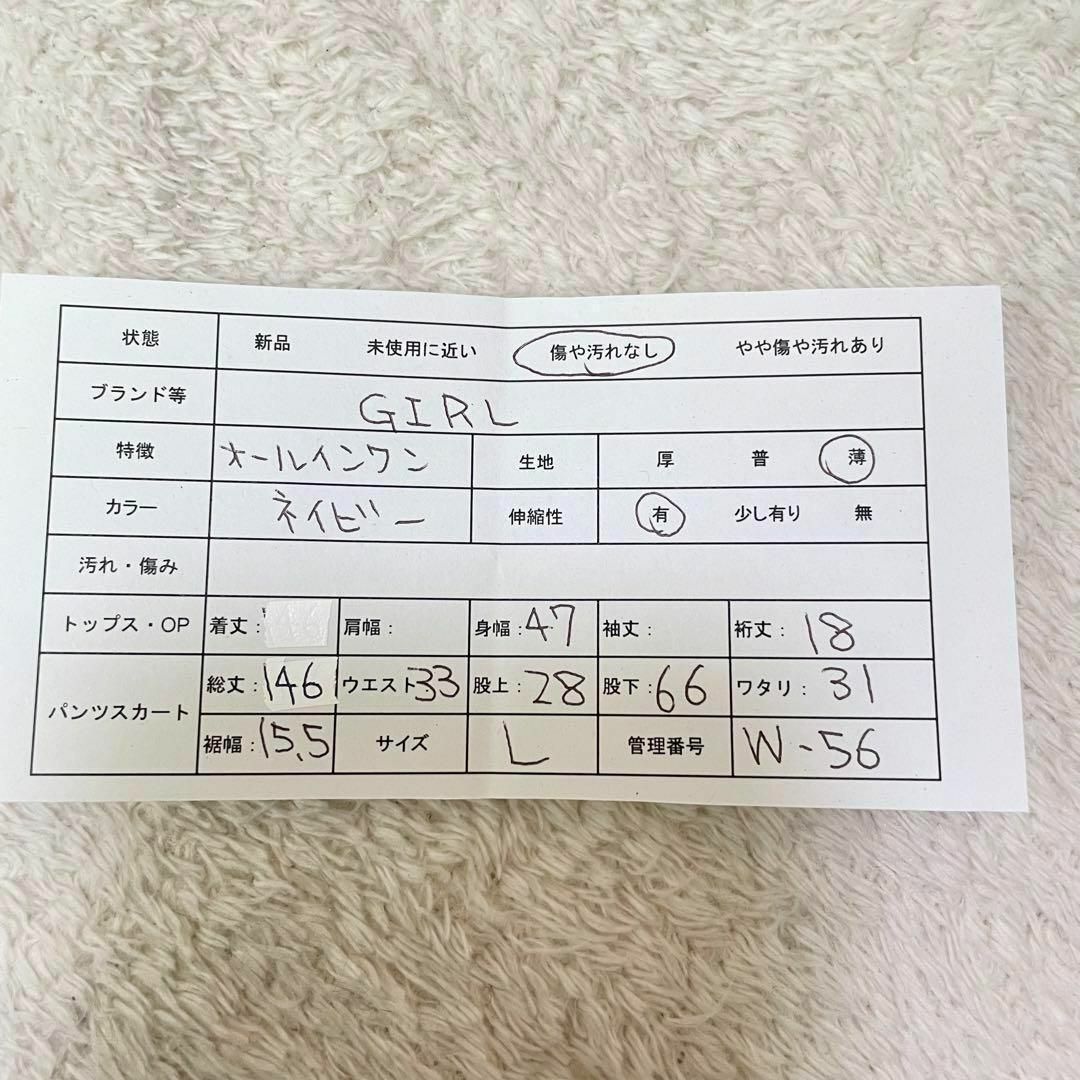 状態 新品 未使用に近い 傷や汚れなし やや傷や汚れあり
ブランド等 GIRL
特徴 オールインワン 生地 厚 普 薄
カラー ネイビー 伸縮性 有 少し有り 無
汚れ・傷み
トップス・OP 着丈: 肩幅: 身幅:47 袖丈: 裄丈:18
パンツスカート 総丈:146 ウエスト33 股上:28 股下:66 ワタリ:31
裾幅:15.5 サイズ L 管理番号 W-56